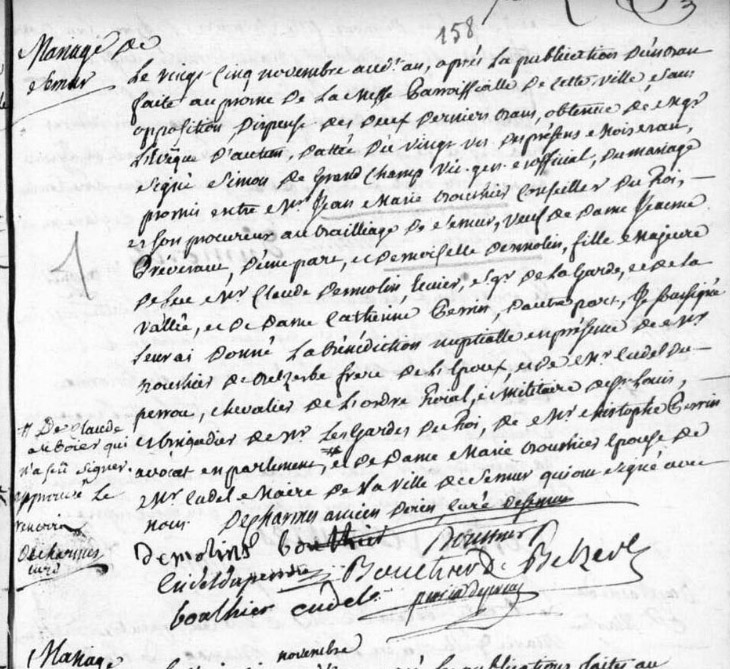 158
Mariage de
Semur
Le vingt cinq novembre aud. an, après la publication d'un ban
faite au prone de la Messe Parroissialle de cette ville, sans
opposition dispense des deux derniers bans, obtenue de Mgr
L'Evêque d'autun, datée du vingt du présent mois
signé Simon de Grand Champ vic. gen. et official, du mariage
promis entre Mr Jean Marie Bouthier Conseiller du Roi,
et son procureur au Bailliage de Semur, Veuf de Dame Jeanne
Préveraud, d'une part, et demoiselle Demolin, fille Majeure
de feu Mr Claude Demolin, Ecuier, sgr de La Garde, et de La
Vallée, et de Dame Catherine Perrin, d'autre part, Je soussigné
leur ai donné La Bénédiction nuptialle en présence de Mr
Bouthier de frere de L'Epoux, et de Mr Cudel du
perron, chevalier de L'ordre Roial, et Militaire de St Louis,
et brigadier de Mr Les Gardes du Roi, de Mr Christophe Perrin
avocat en parlement, # et de Dame Marie Bouthier Epouse de
Mr Cudel Maire de La Ville de Semur qui ont signé avec
nous Decharmes ancien Doien, curé de Semur
# De Claude
qui
n'a sçu signer.
approuvé Le
renvoi
Decharmes
curé
Demolins Bouthier
Cudel Duperron Bouthier De
bouthier cudel
Mariage
novembre
la publication faite au